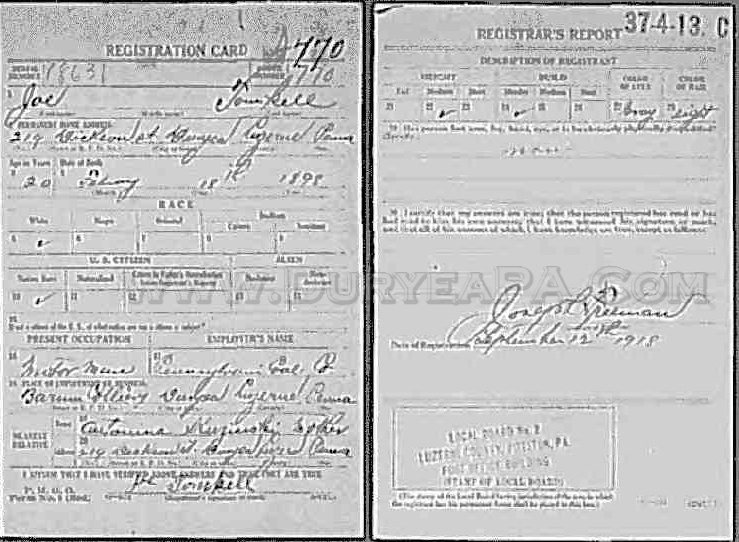 REGISTRATION CARD 770
SERIAL NUMBER 18631 ORDER NUMBER 1770
Joe Tomkell
PERMANENT HOME ADDRESS:
219 Dickson St. Duryea Luzerne Penna
Age in Years Date of Birth
20 18th 1898
RACE
White Negro Oriental Indian
Citizen Noncitizen
5 ✓ 6 7 8 9
U. S. CITIZEN ALIEN
Native Born Naturalized Citizen by Father's Naturalization Before Registrant's Majority Declarant Non-declarant
10 ✓ 11 12 13 14
15
If not a citizen of the U. S., of what nation are you a citizen or subject?
PRESENT OCCUPATION EMPLOYER'S NAME
16 Mine 17 Pennsylvania Coal Co
18 PLACE OF EMPLOYMENT OR BUSINESS:
Barnum Colliery Duryea Luzerne Penna
NEAREST RELATIVE
Name 19
Address 20 219 Dickson St. Duryea Luzer Penna
I AFFIRM THAT I HAVE VERIFIED ABOVE ANSWERS AND THAT THEY ARE TRUE
P. M. G. O.
Form No. 1 (Red)
Joe Tomkell
REGISTRAR'S REPORT 37-4-13. C
DESCRIPTION OF REGISTRANT
HEIGHT BUILD COLOR OF EYES COLOR OF HAIR
Tall Medium Short Slender Medium Stout
21 22 ✓ 23 24 ✓ 25 26 27 Gray 28 Light
29 Has person lost arm, leg, hand, eye, or is he obviously physically disqualified?
30 I certify that my answers are true; that the person registered has read or has
had read to him his own answers; that I have witnessed his signature or mark,
and that all of his answers of which I have knowledge are true, except as follows:
Joseph Freeman
Date of Registration September 12th 1918
LOCAL BOARD No. 2
LUZERNE COUNTY, PITTSTON, PA.
POST OFFICE BUILDING
(STAMP OF LOCAL BOARD)
(The stamp of the Local Board having jurisdiction of the area in which
the registrant has his permanent home shall be placed in this box.)
WWW.DURYEAPA.COM